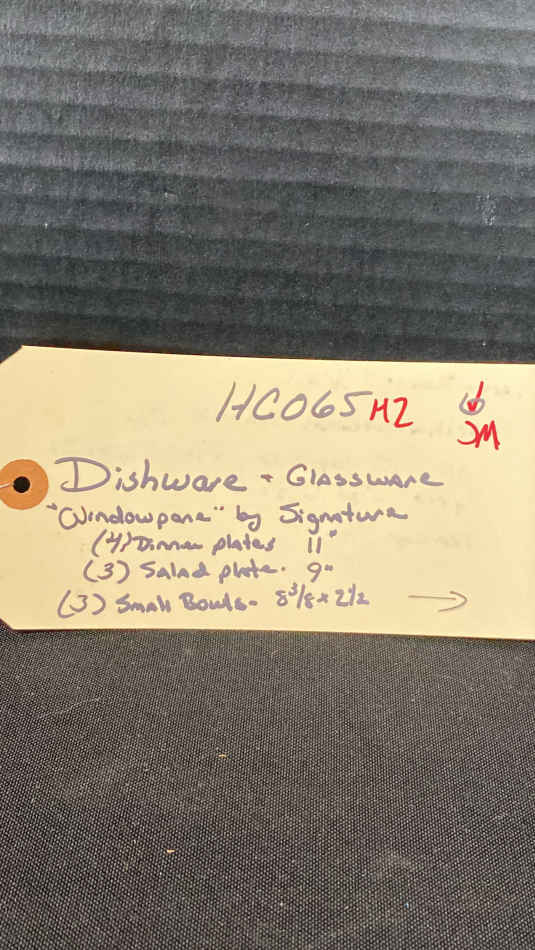 HC065 HZ
JM
Dishware + Glassware
"Windowpane" by Signature
(4) Dinner plates 11"
(3) Salad plate. 9"
(3) Small Bowls- 8 3/8 x 2 1/2 →